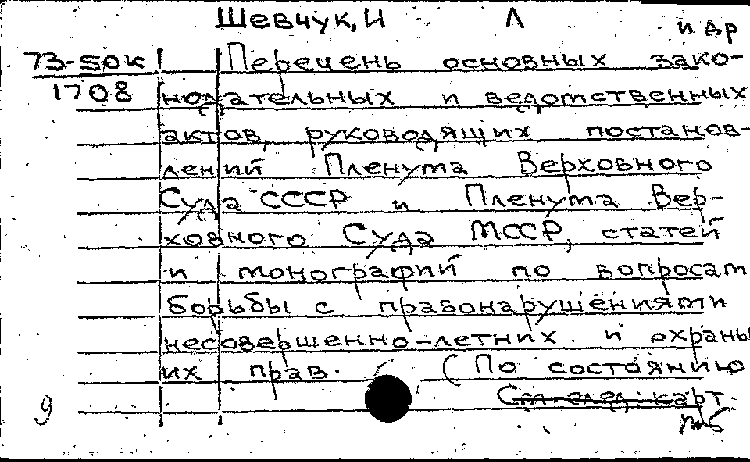 Шевчук, И Л и др
73-50К Перечень основных зако-
1708 нодательных и ведомственных
актов, руководящих постанов-
лений Пленума Верховного
Суда СССР и Пленума Вер-
ховного Суда МССР, статей
и монографий по вопросам
борьбы с правонарушениями
несовершенно-летних и охраны
их прав. (По состоянию
См след. карт.
9